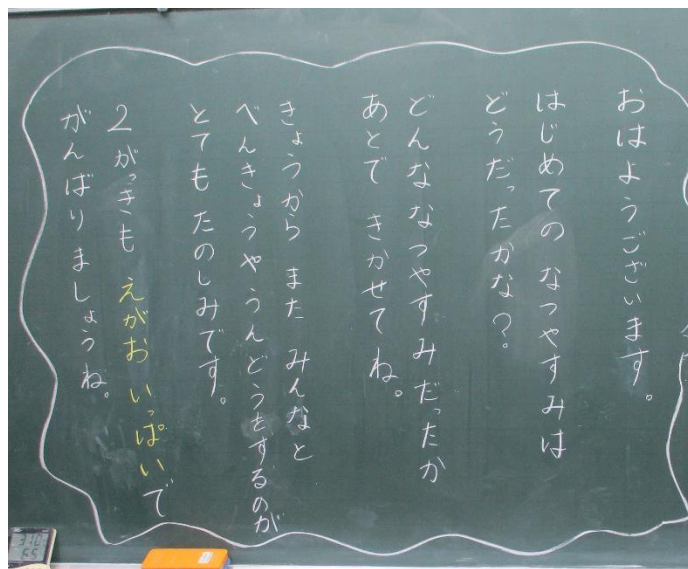 おはようございます。
はじめての なつやすみは
どうだったかな?
どんななつやすみだったか
あとで きかせてね。
きょうから また みんなと
べんきょうやうんどうをするのが
とても たのしみです。
2がっきも えがお いっぱいで
がんばりましょうね。